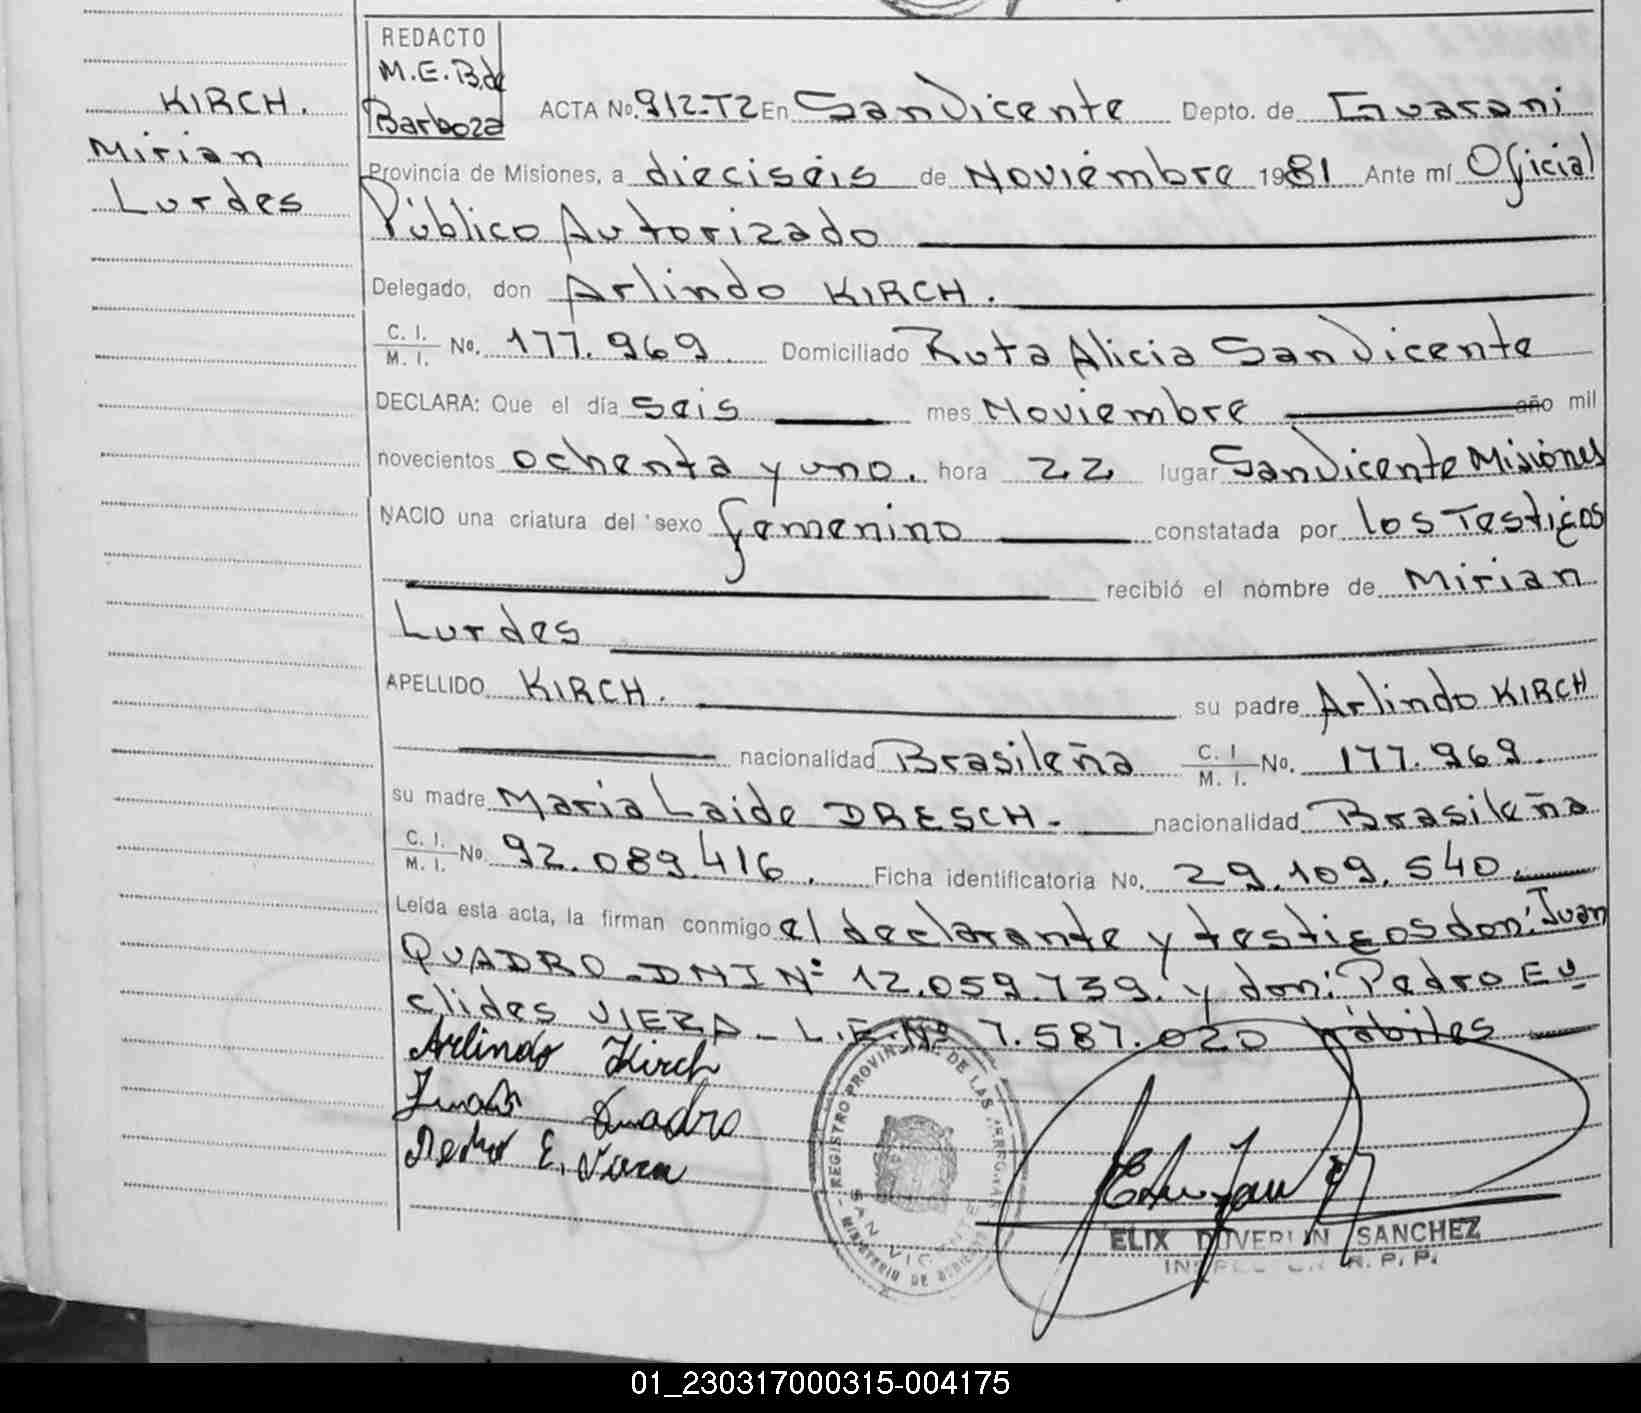 KIRCH.
Mirian
Lurdes
REDACTO
M.E.B.de
Barboza
ACTA No. 912-T2 En San Vicente Depto. de Guarani
Provincia de Misiones, a dieciséis de Noviembre 1981 Ante mí Oficial
Público Autorizado
Delegado, don Arlindo KIRCH.
C. I. / M. I. No. 177.969. Domiciliado Ruta Alicia San Vicente
DECLARA: Que el día seis mes Noviembre año mil
novecientos ochenta y uno. hora 22 lugar San Vicente Misiones
NACIO una criatura del sexo femenino constatada por los Testigos
recibió el nombre de Mirian
Lurdes
APELLIDO KIRCH. su padre Arlindo KIRCH
nacionalidad Brasileña C. I / M. I. No. 177.969.
su madre Maria Laide DRESCH.- nacionalidad Brasileña
C. I. / M. I. No. 92.089.416. Ficha identificatoria No. 29.109.540.
Leída esta acta, la firman conmigo el declarante y testigos don: Juan
QUADRO-DNI Nº 12.059.739. y don: Pedro Eu
clides VIERA - L.E. Nº 7.587.020 hábiles
Arlindo Kirch
Juan Quadro
Pedro E. Viera
REGISTRO PROVINCIAL DE LAS PERSONAS
SAN VICENTE
MINISTERIO DE
ELIX DUVERLIN SANCHEZ
INSPECTOR R. P. P.
01_230317000315-004175